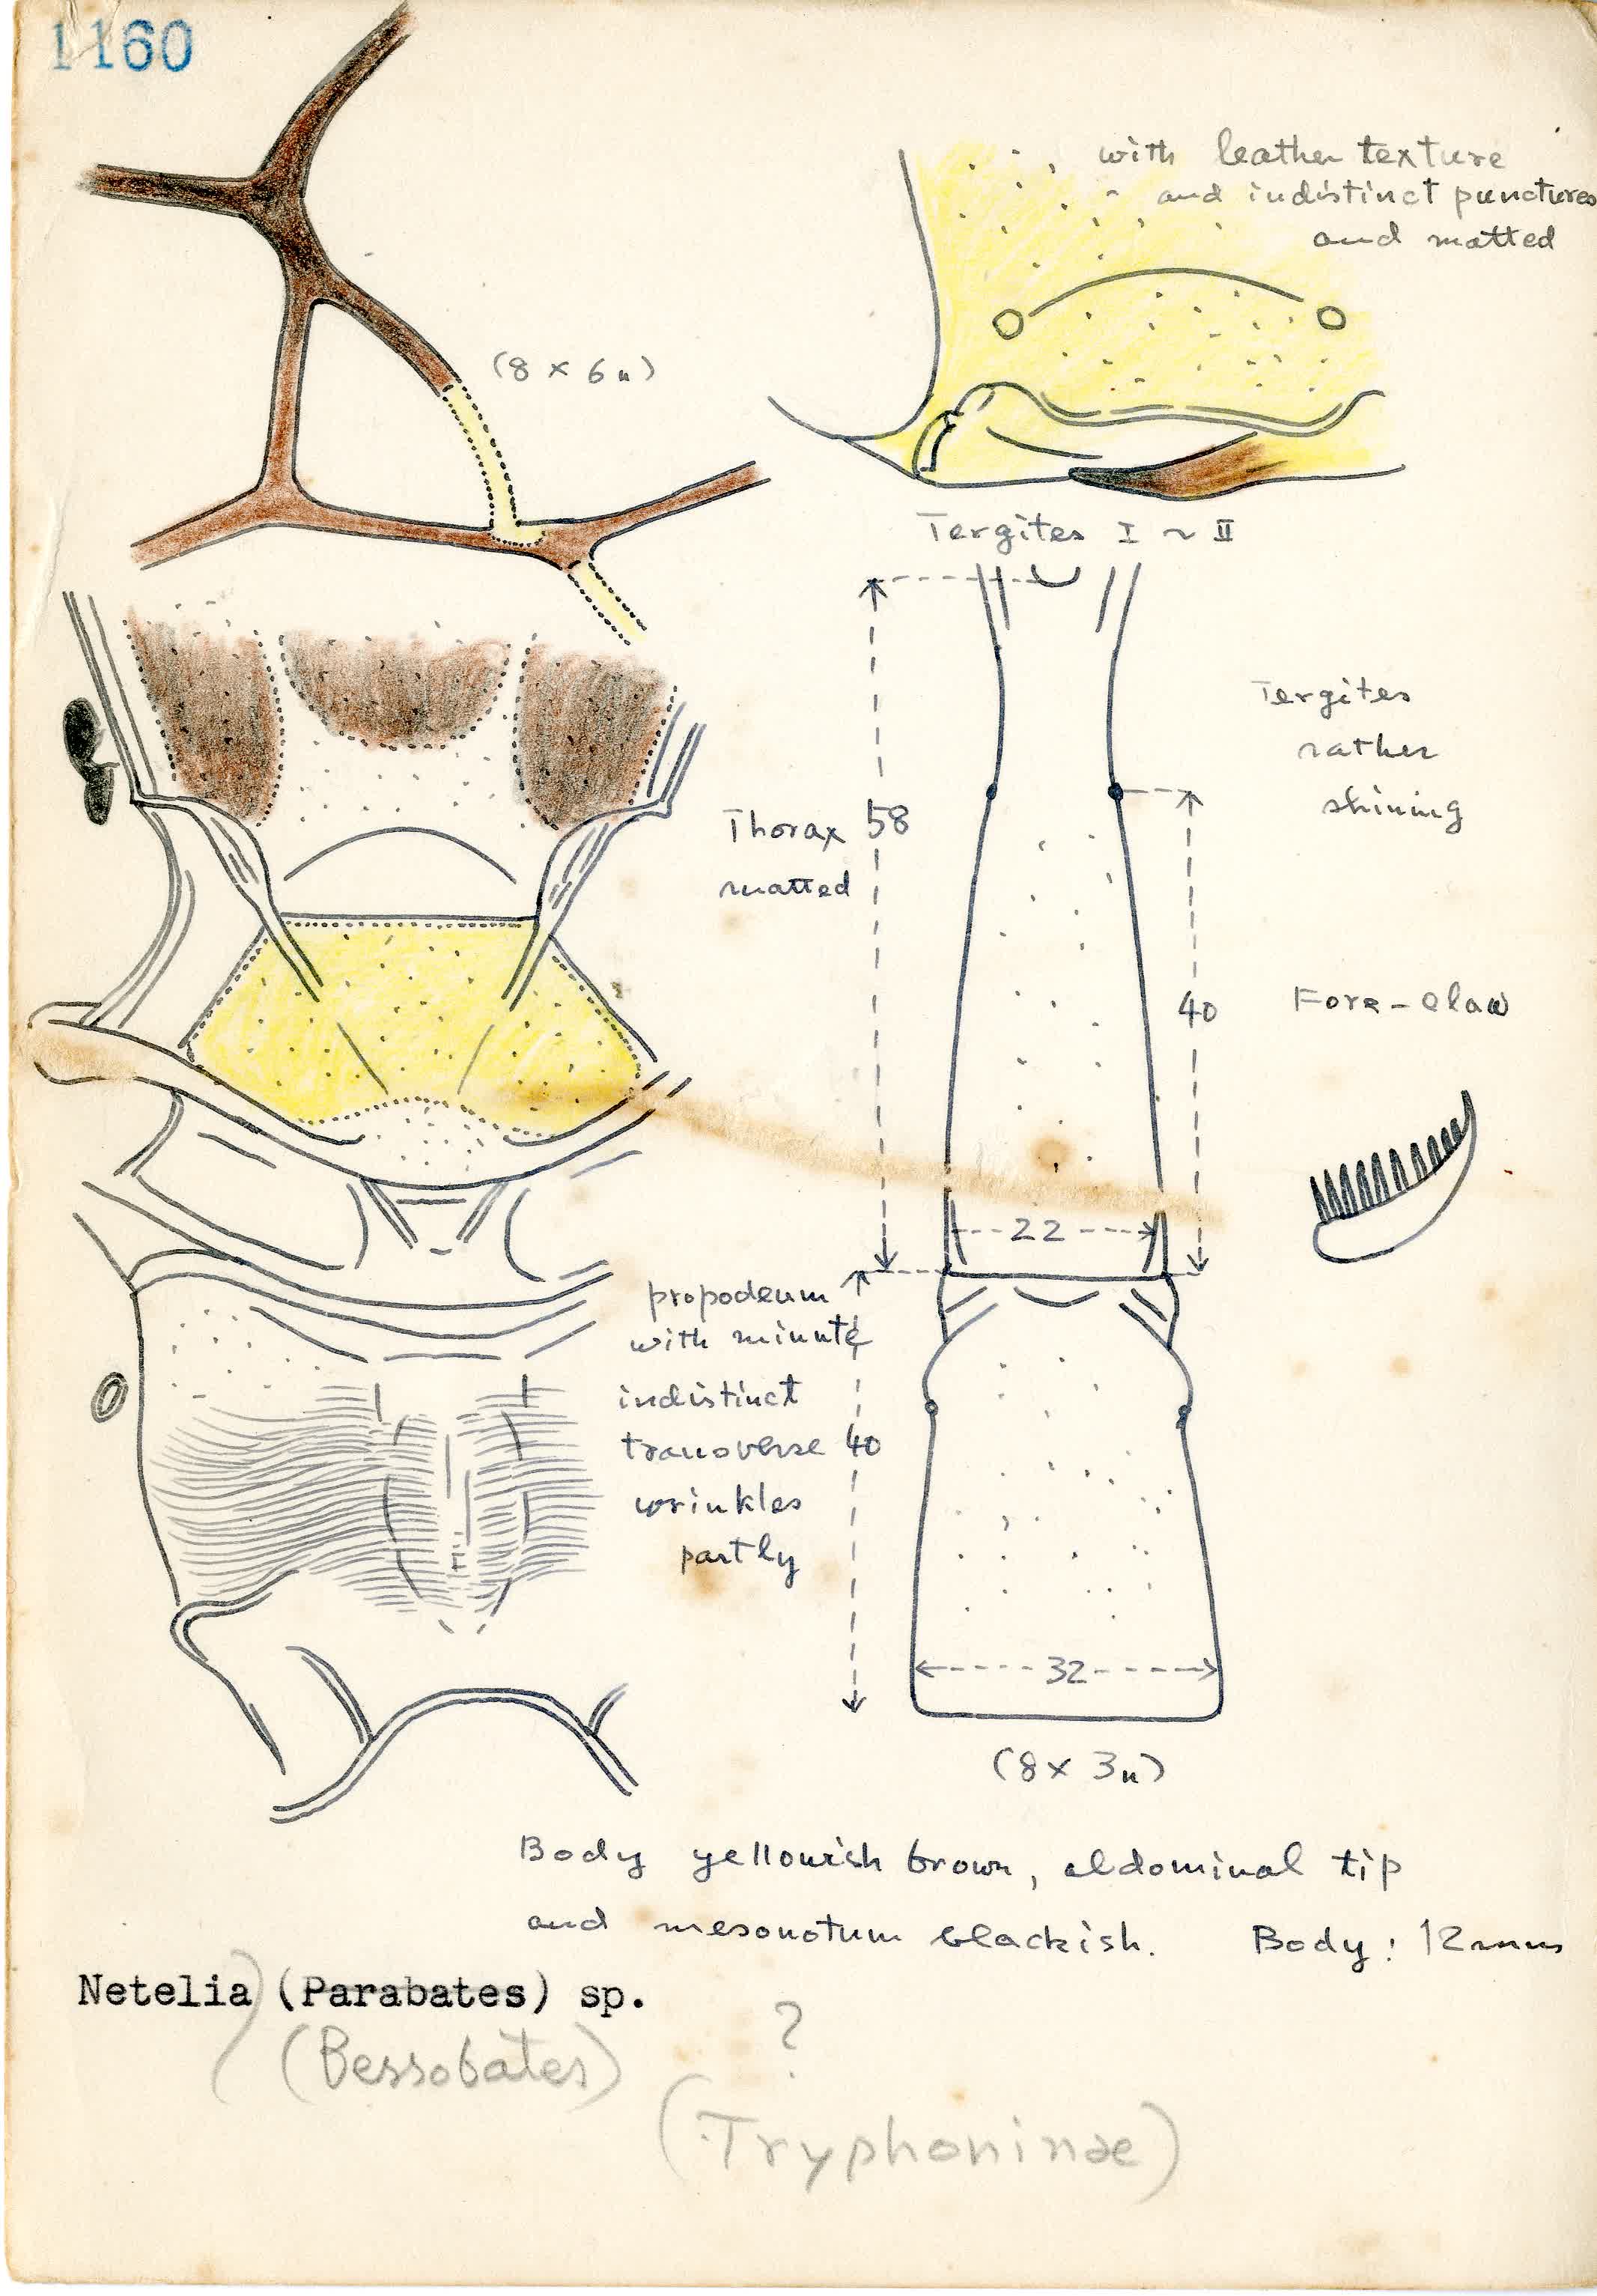 1160
with leather texture
and indistinct punctures
and matted
(8 × 6u)
Tergites I ~ II
Tergites
rather
shining
Thorax 58
matted
40
Fore-claw
22
propodeum
with minute
indistinct
transverse 40
wrinkles
partly
32
(8 × 3u)
Body yellowish brown, abdominal tip
and mesonotum blackish. Body: 12mm
Netelia (Parabates) sp.
(Bessobates) ?
(Tryphoninae)